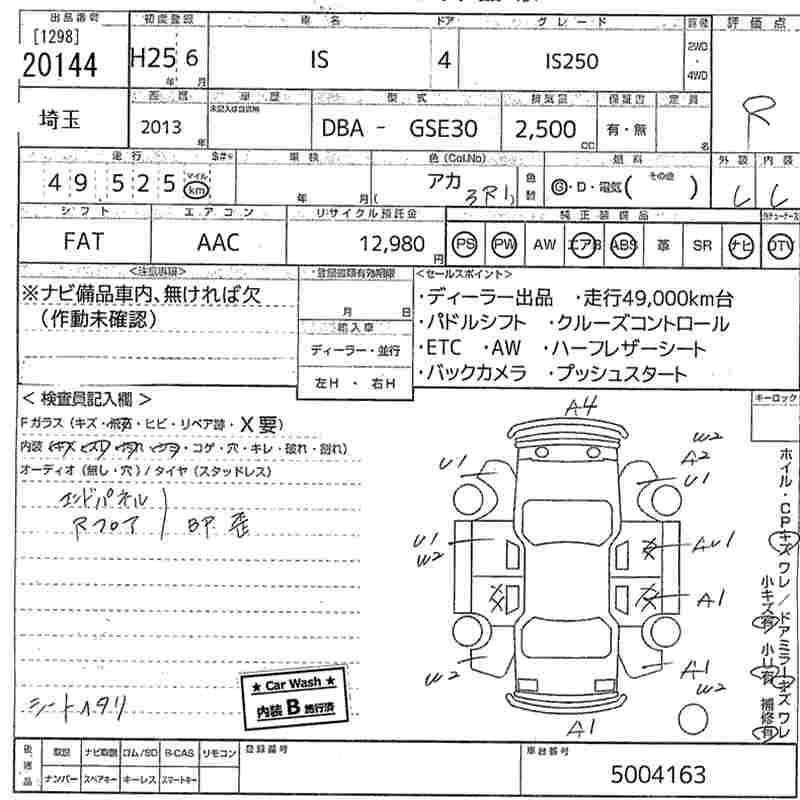 出品番号 初度登録 車名 ドア グレード 駆動 評価点
[1298]
20144 H25 6 IS 4 IS250 2WD ・ 4WD
年 月
埼玉 西暦 車歴 型式 排気量 保証書 定員 R
未記入は自家用
2013 年 DBA - GSE30 2,500 cc 有・無 名
走行 車検 色(Col.No) 燃料 外装 内装
49525 マイル km 年 月 アカ 3R1 色替 G・D・電気( その他 ) C C
シフト エアコン リサイクル預託金 純正装備品
FAT AAC 12,980 円 PS PW AW エアB ABS 革 SR ナビ DTV
<注意事項> 登録書類有効期限 <セールスポイント>
※ナビ備品車内、無ければ欠
(作動未確認)
月 日
輸入車
ディーラー・並行
左H ・ 右H
・ディーラー出品 ・走行49,000km台
・パドルシフト ・クルーズコントロール
・ETC ・AW ・ハーフレザーシート
・バックカメラ ・プッシュスタート
< 検査員記入欄 > キーロック
Fガラス(キズ・飛石・ヒビ・リペア跡・X要)
内装(キズ・スレ・汚れ・ ・コゲ・穴・キレ・破れ・割れ)
オーディオ(無し・穴)/タイヤ(スタッドレス)
エンドパネル
Rフロア BP 歪
シートヘタリ
★ Car Wash ★
内装 B 施行済
A4
U1
W2
A2
U1
U1
W2
AU1
A1
W2
A1
W2
A1
ホイル・CPキズ ワレ/ドアミラーキズ ワレ
小キズ有 小U有 補修有
後備品 取説 ナビ取説 ロム/SD B-CAS リモコン 登録番号 車台番号
ナンバー スペアキー キーレス スマートキー
5004163